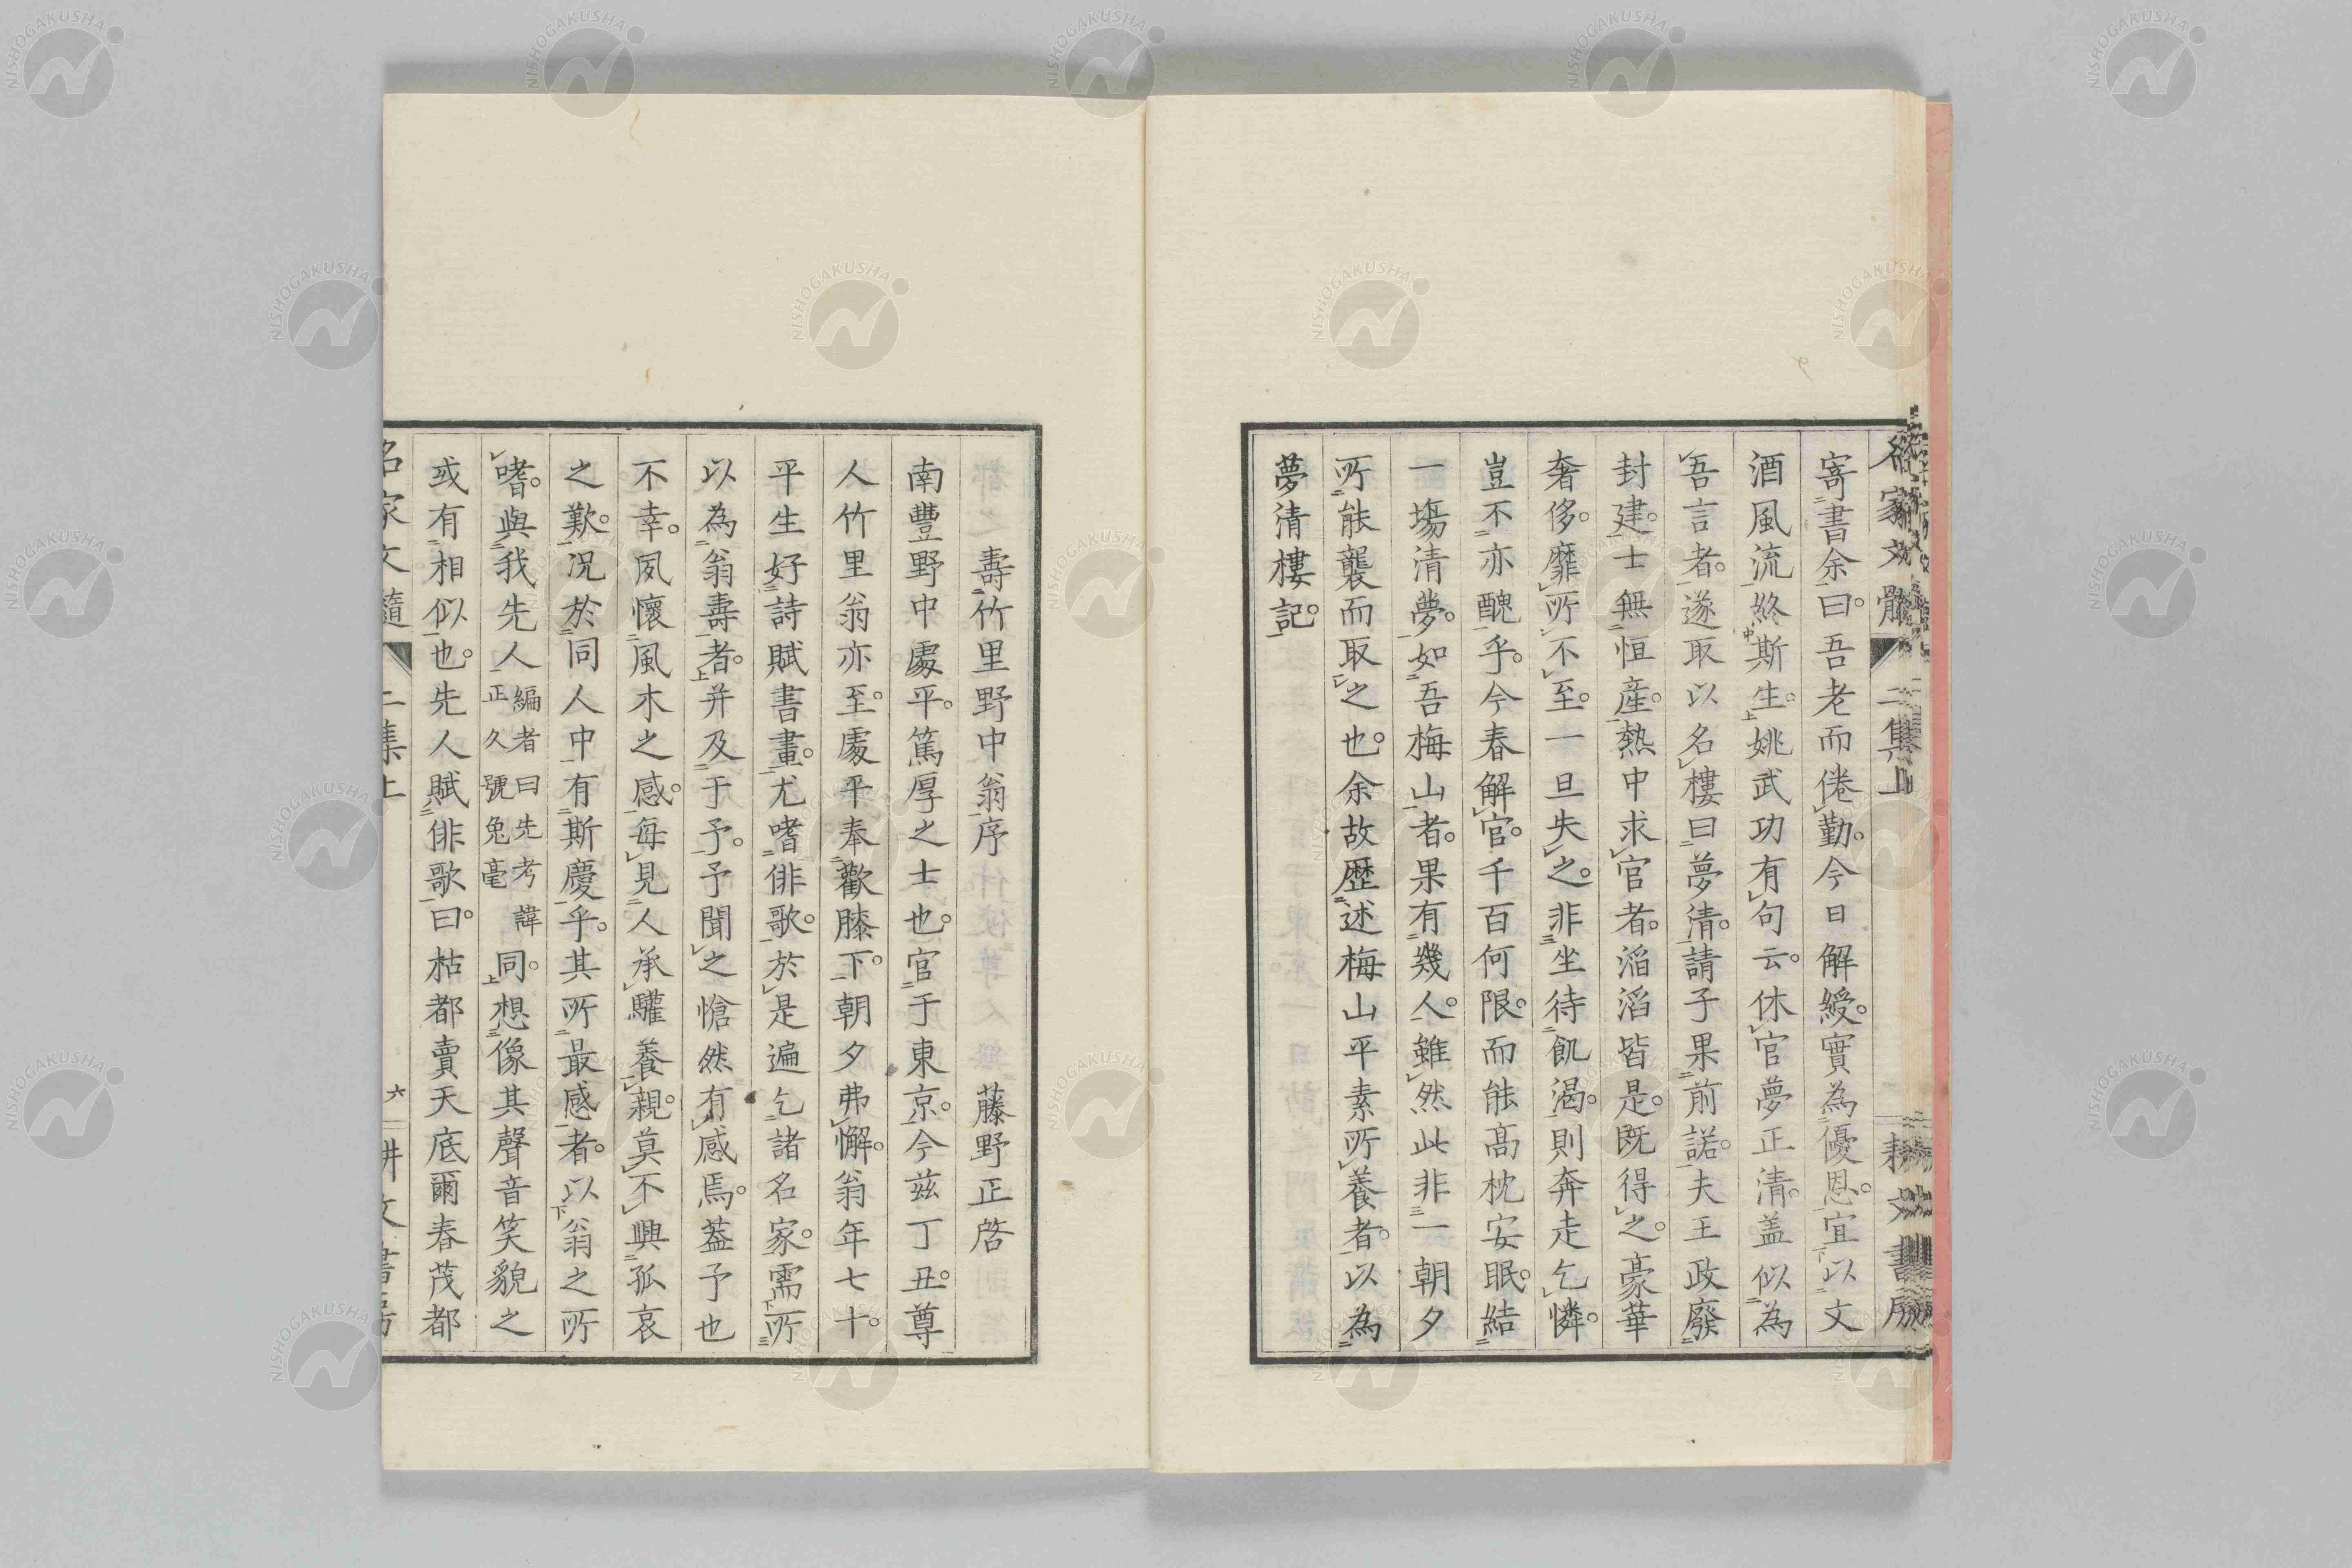 名家文髓 二集上 耕文書房
寄書余曰。吾老而倦勤。今日解綬。實為優恩。宜以文
酒風流終斯生。姚武功有句云。休官夢正清。盖似為
吾言者。遂取以名樓曰夢清。請子果前諾。夫王政廢
封建。士無恒産。熱中求官者。滔滔皆是。既得之。豪華
奢侈。靡所不至。一旦失之。非坐待飢渴。則奔走乞憐。
豈不亦醜乎。今春解官。千百何限。而能高枕安眠。結
一場清夢。如吾梅山者。果有幾人。雖然此非一朝夕
所能襲而取之也。余故歴述梅山平素所養者。以為
夢清樓記。
壽竹里野中翁序 藤野正啓
南豐野中處平。篤厚之士也。官于東京。今茲丁丑。尊
人竹里翁亦至。處平奉歡膝下。朝夕弗懈。翁年七十。
平生好詩賦書畫。尤嗜俳歌。於是遍乞諸名家。需所
以為翁壽者。并及于予。予聞之愴然有感焉。葢予也
不幸。夙懷風木之感。每見人承驩養親。莫不興孤哀
之歎。况於同人中有斯慶乎。其所最感者。以翁之所
嗜。與我先人編者曰先考諱正久號兔毫同。想像其聲音笑貌之
或有相似也。先人賦俳歌曰。枯都賣天底爾春茂都
名家文髓 二集上 六 耕文書房